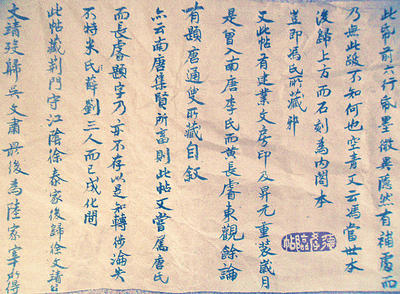 此帋前六行帋墨微異隱然有補處而
乃無此跋不知何也空青又云馮當世本
後歸上方而石刻為內閣本
豈即馮氏所藏邪
又此帖有建業文房印及昇元重裝歲月
是曾入南唐李氏而黃長睿東觀餘論
有題唐通叟所藏自敘
亦云南唐集賢所畜則此帖又嘗屬唐氏
而長睿題字乃亦不存以是知轉傳淪失
不特米氏薛劉三人而已成化間
此帖藏荊門守江陰徐泰家後歸徐文靖公
文靖歿歸吳文肅最後為陸冢宰所得
臨帖